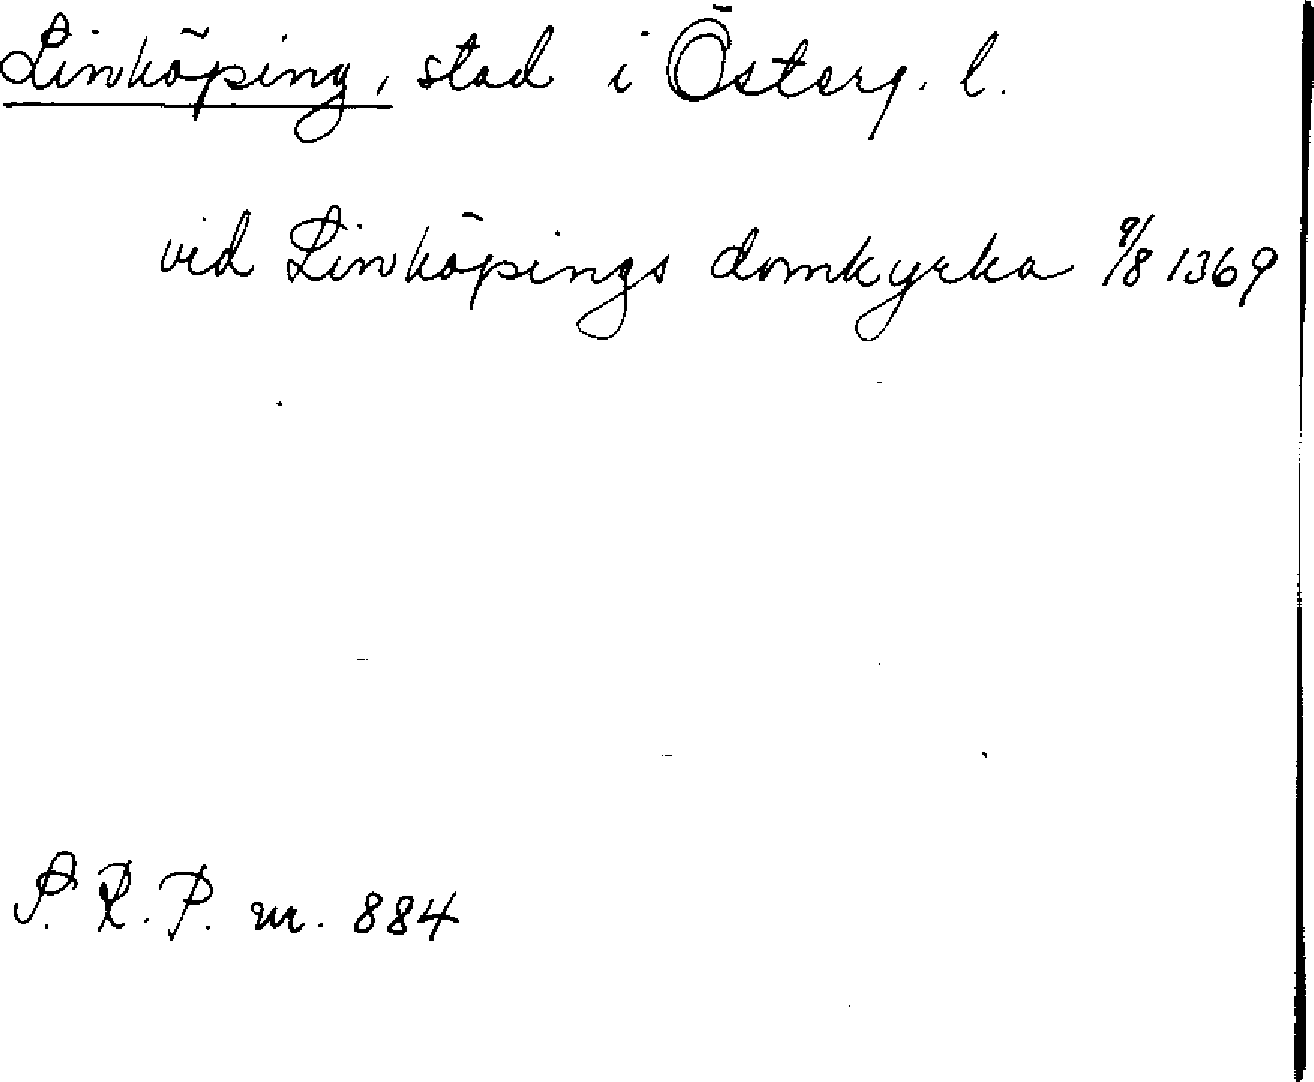 Linköping, stad i Österg. l.
vid Linköpings domkyrka 9/8 1369
S. R. P. nr. 884